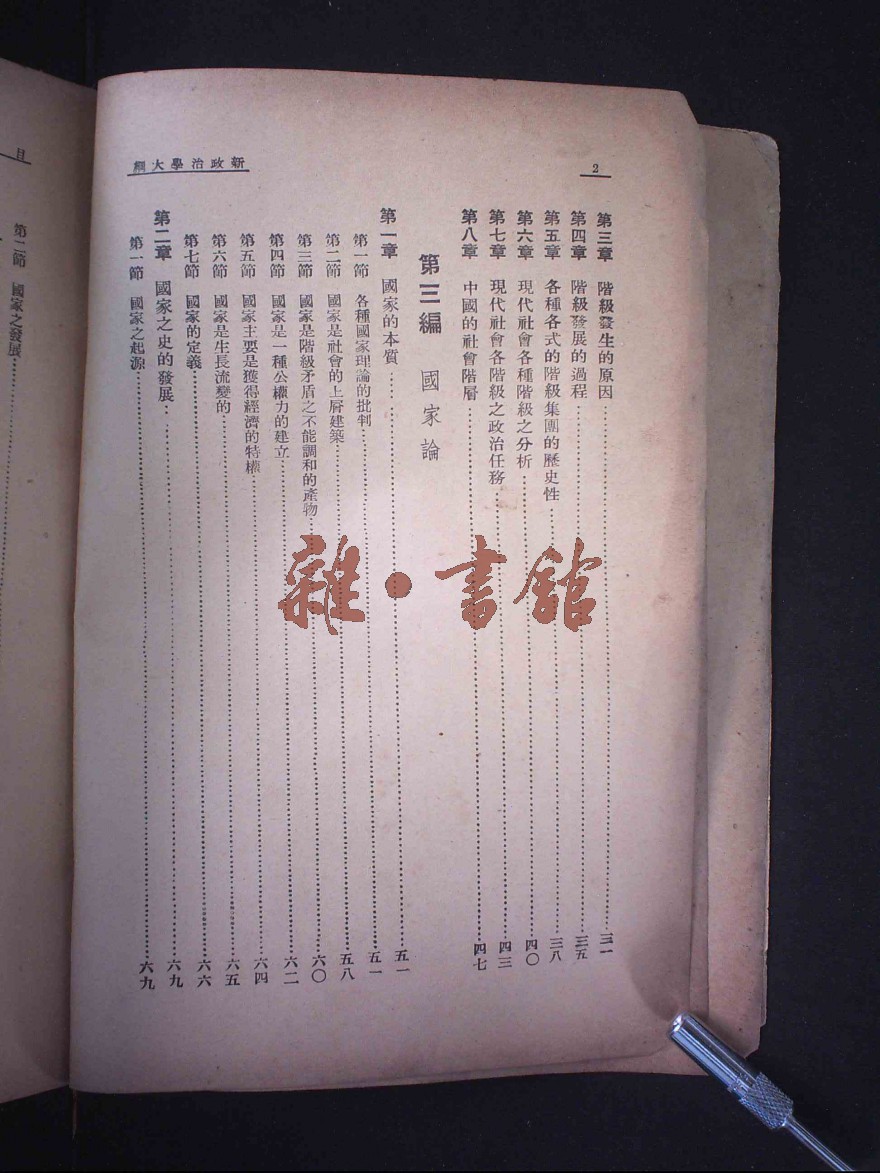 2
新政治學大綱
第三章 階級發生的原因 三一
第四章 階級發展的過程 三五
第五章 各種各式的階級集團的歷史性 三八
第六章 現代社會各種階級之分析 四〇
第七章 現代社會各階級之政治任務 四三
第八章 中國的社會階層 四七
第三編 國家論
第一章 國家的本質 五一
第一節 各種國家理論的批判 五一
第二節 國家是社會的上層建築 五八
第三節 國家是階級矛盾之不能調和的產物 六〇
第四節 國家是一種公權力的建立 六二
第五節 國家主要是獲得經濟的特權 六四
第六節 國家是生長流變的 六五
第七節 國家的定義 六六
第二章 國家之史的發展 六九
第一節 國家之起源 六九
目
第二節 國家之發展
雜·書館